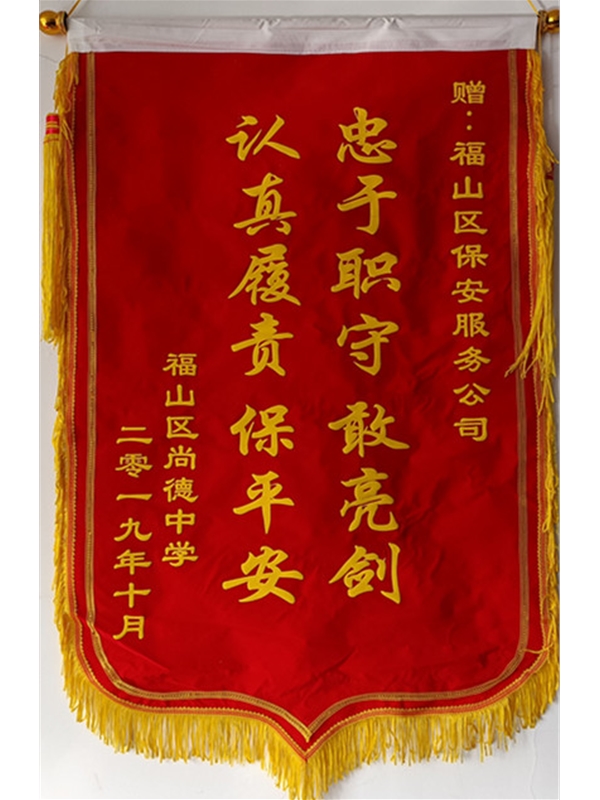 赠：福山区保安服务公司
忠于职守敢亮剑
认真履责保平安
福山区尚德中学
二零一九年十月